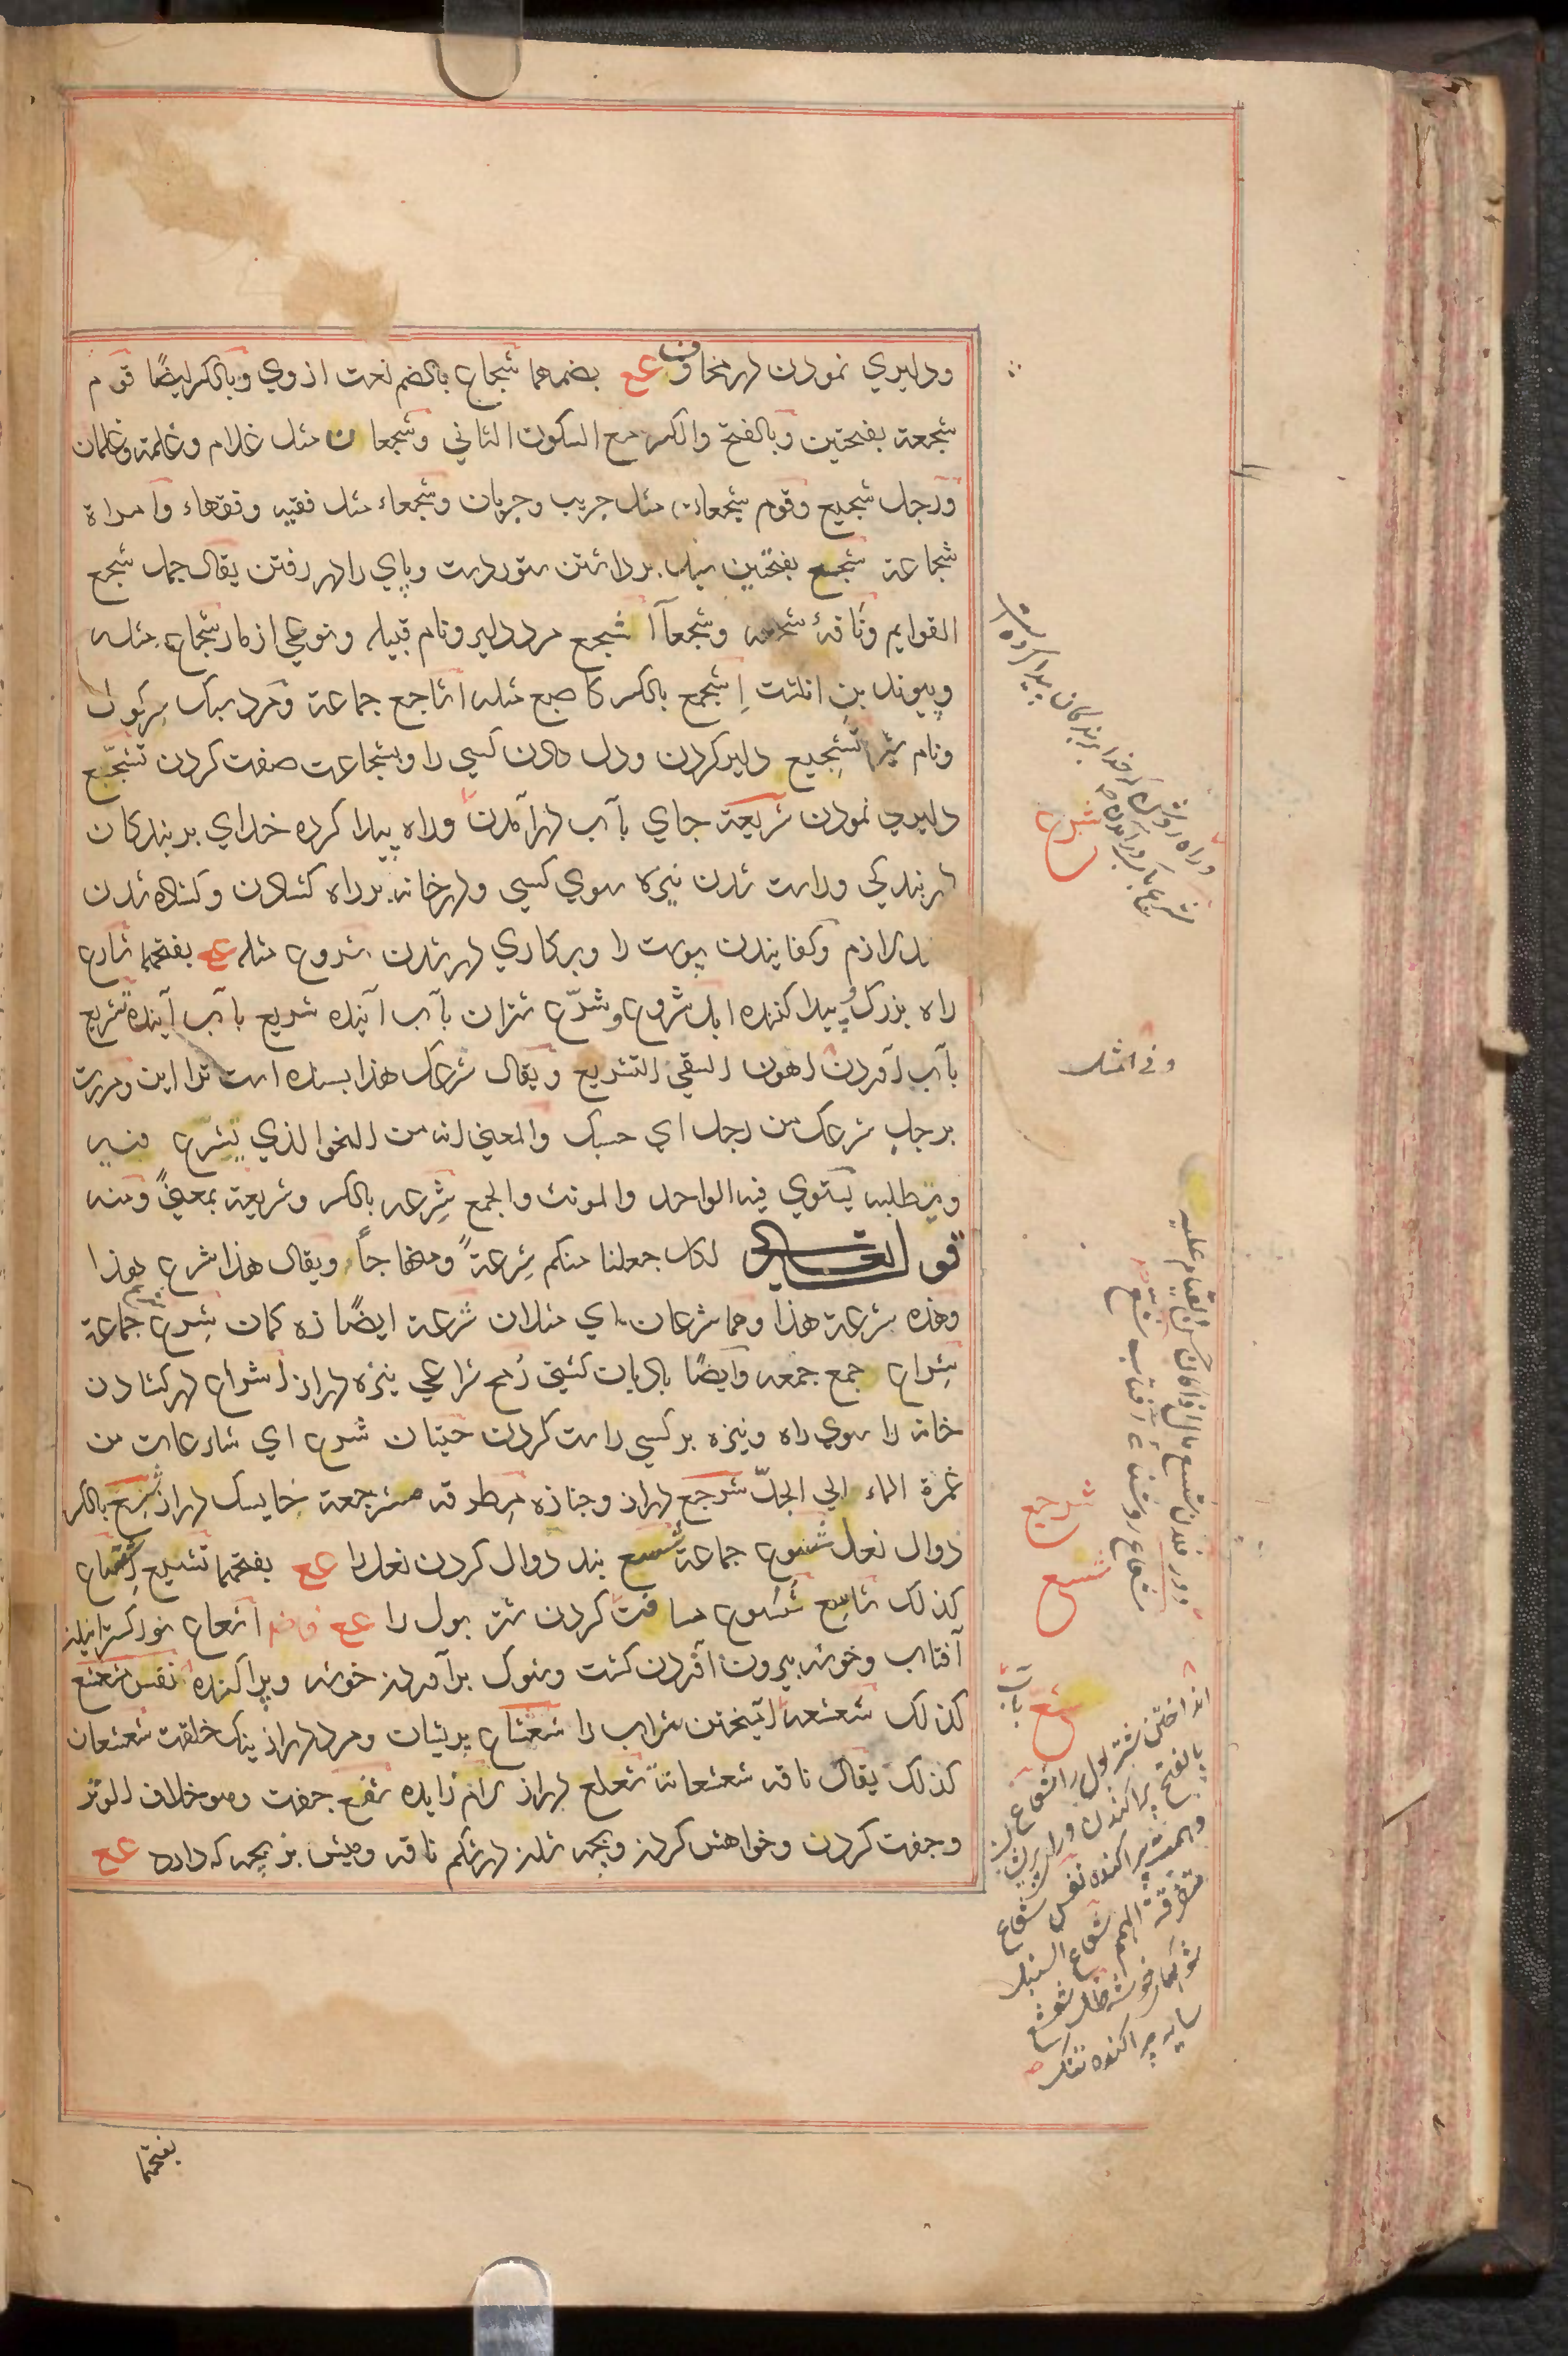 ودليري نمودن در مخاوف عع بضمهما شجاع بالضم نعت از وي وبالكسر ايضًا قوم
شجعة بفتحتين وبالفتح والكسر مع السكون الثاني وشجعان مثل غلام وغلمة وغلمان
ورجل شجيع وقوم شجعان مثل جريب وجربان وشجعاء مثل فقيه وفقهاء وامراة
شجاعة شجع بفتحتين سبك برداشتن ستور دست وپاي را در رفتن يقال جمل شجع
القوايم وناقة شجعة وشجعآ اشجع مرد دلير ونام قبيله ونوعي از مار شجاع مثله
وپيوند بن انكشت اِشجع بالكسر كاصبع مثله اشاجع جماعة ومرد سبك
ونام تشجيع دلير كردن ودل دادن كسي را وبشجاعت صفت كردن تشجّع
دليري نمودن شريعة جاي بآب درآمدن وراه پيدا كرده خداي بر بندكان
در بندكي وراست شدن نيزه سوي كسي ودر خانه بر راه كشادن وكشاده شدن
لازم وكفانيدن پوست را وبركاري در شدن شروع مثله عع بفتحهما شارع
راه بزرك وپيدا كننده ابل شروع وشرّع شتران بآب آينده شريع بآب آينده تشريع
بآب آوردن اهون السقي التشريع ويقال شرعك هذا بسنده است ترا اين ومررت
برجلٍ شرعك من رجل اي حسبك والمعني انه من النحو الذي يشرع فيه
ويطلبه يستوي فيه الواحد والمونث والجمع شِرعه بالكسر وشريعة بمعنيً ومنه
قوله تعالى لكل جعلنا منكم شِرعةً ومنهاجاً ويقال هذا شرع هذا
وهذه شرعة هذا وهما شرعان اي مثلان شرعة ايضًا زه كمان شِرع جماعة
شِراع جمع جمعه وايضًا بادبان كشتي رُمح شراعي نيزه دراز اشراع در كشادن
خانه را سوي راه ونيزه بر كسي راست كردن حيتان شرع اي شارعات من
غمرة الماء الي الجدّ شرجع دراز وجنازه مطرقه مشرجعة خايسك دراز شِسع بالكسر
دوال نعل شسوع جماعة شسع بند دوال كردن نعل را عع بفتحهما تشسيع اِشساع
كذلك شاسِع شُسُوع مسافت كردن شتر بول را عع اشعاع نور كسترانيدن
آفتاب وخوشه بيرون آوردن كشت وشوك برآوردن خوشه وپراكنده نفس شعشع
كذلك شعشعة آميختن شراب را شعشاع پريشان ومرد دراز نيك خلقت شعشعان
كذلك يقال ناقه شعشعانة شعلع دراز لام زايده شفع جفت وهو خلاف الوتر
وجفت كردن وخواهش كردن وبچه شدن در شكم ناقه وميش بز بچه كه دارد عع
بفتحهما
وراه روشن كه خدا بر بندكان پيدا كرده است
شرع
وفي المثل
شرجع
شسع
شعاع روشنائي آفتاب شع
شع
باب
انداختن شتر بول را شعاع
بالفتح پراكندن
وهمت پراكنده نفس شعاع
متفرقة الهمم شعاع السنبل
سايه پراكنده تنك